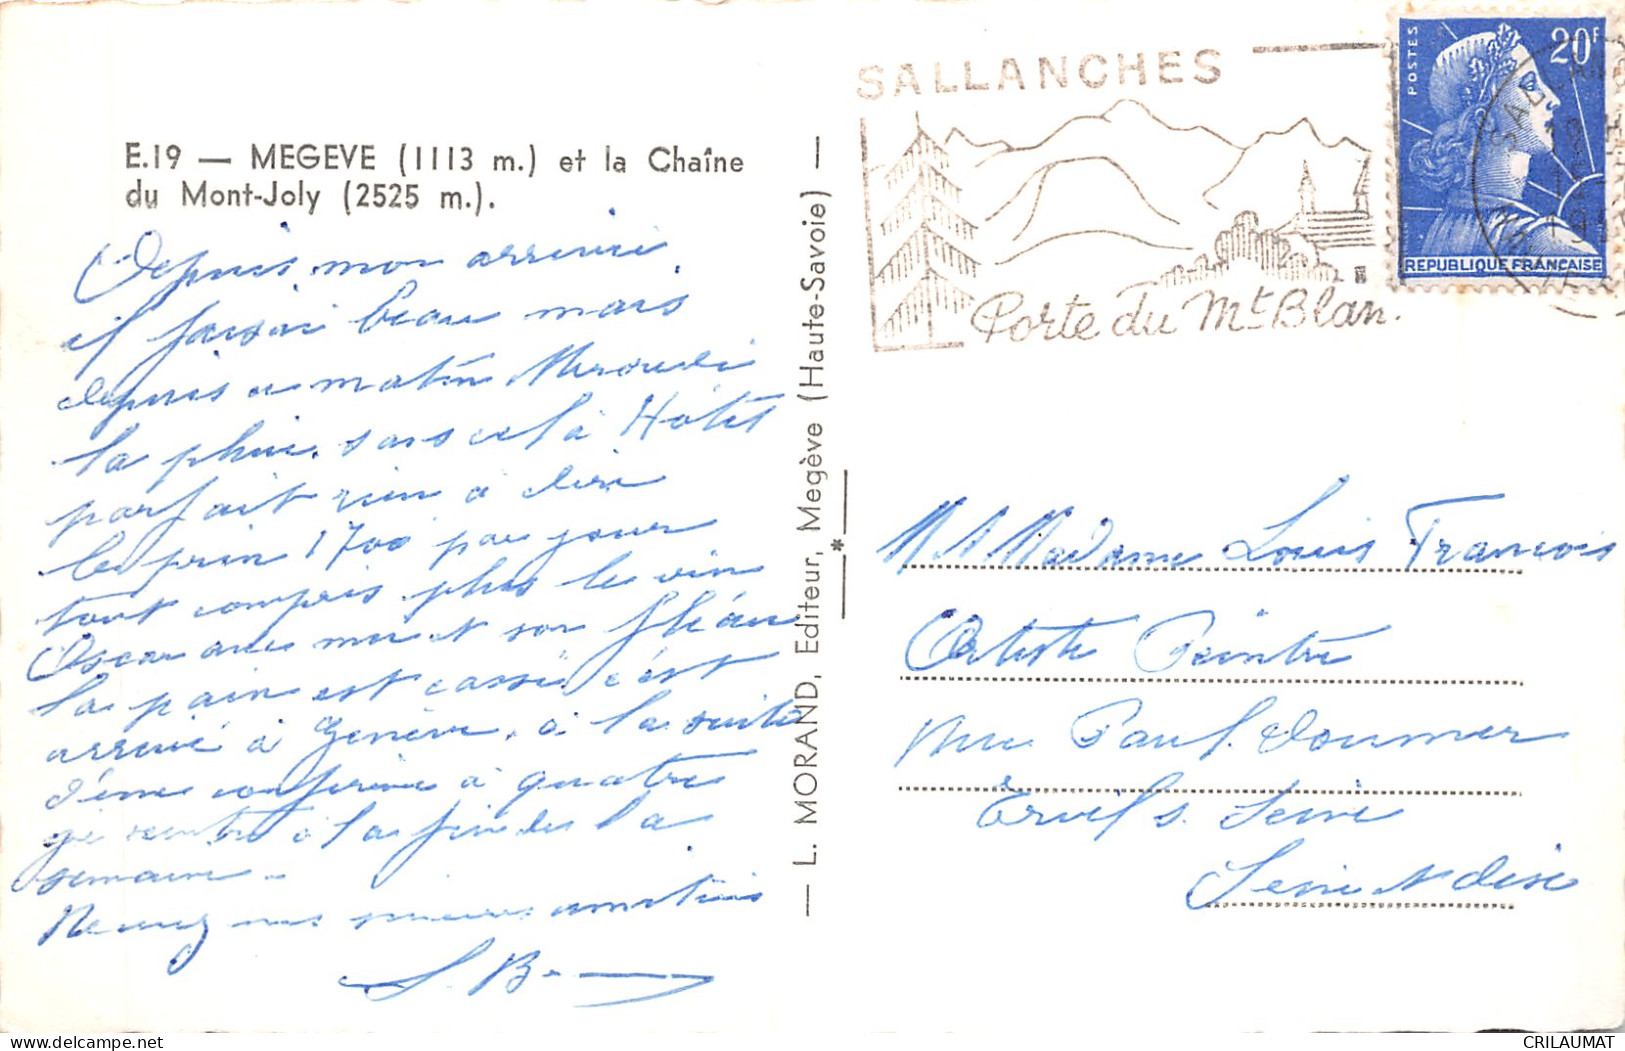 E.19 — MEGEVE (1113 m.) et la Chaîne
du Mont-Joly (2525 m.).
Depuis mon arrivée
il faisai beau mais
depuis ce matin Mercredi
la pluie, sans cela Hôtel
parfait rien à dire
le prix 1700 par jour
tout compris plus le vin
Oscar avec moi et son fléau
la pain est cassé c'est
arrivé à Genève, à la suite
d'une conférence à quatre
je rentre à la fin de la
semaine.
Recevez mes amitiés
S. B.
— L. MORAND, Editeur, Megève (Haute-Savoie) —
*
SALLANCHES
Porte du Mt Blan.
POSTES
20F
REPUBLIQUE FRANÇAISE
Madame Louis François
Artiste Peintre
Rue Paul Doumer
s. Seine
Seine et Oise
CRILAUMAT